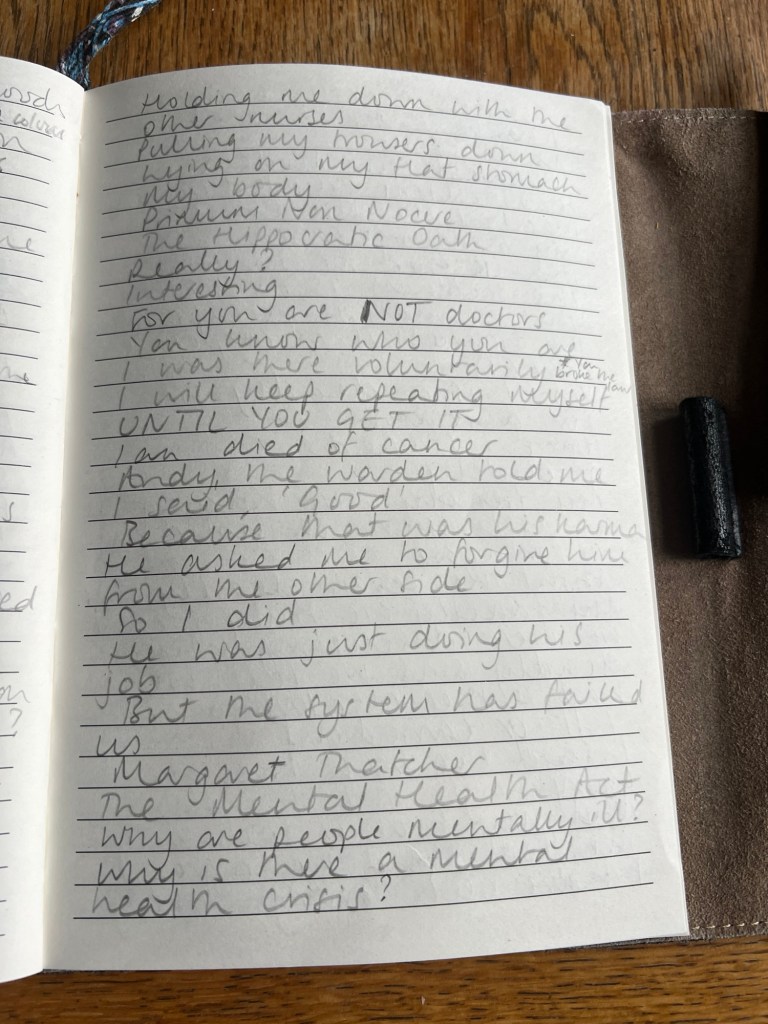 Holding me down with the
other nurses
Pulling my trousers down
Lying on my flat stomach
My body
Primum Non Nocere
The Hippocratic Oath
Really?
Interesting
For you are NOT doctors
You know who you are
I was there voluntarily & you broke the law
I will keep repeating myself
UNTIL YOU GET IT
Ian died of cancer
Andy, the warden told me
I said, 'Good'
Because that was his karma
He asked me to forgive him
from the other side
So I did
He was just doing his
job
But the system has failed
us
Margaret Thatcher
The Mental Health Act
Why are people mentally ill?
Why is there a mental
health crisis?